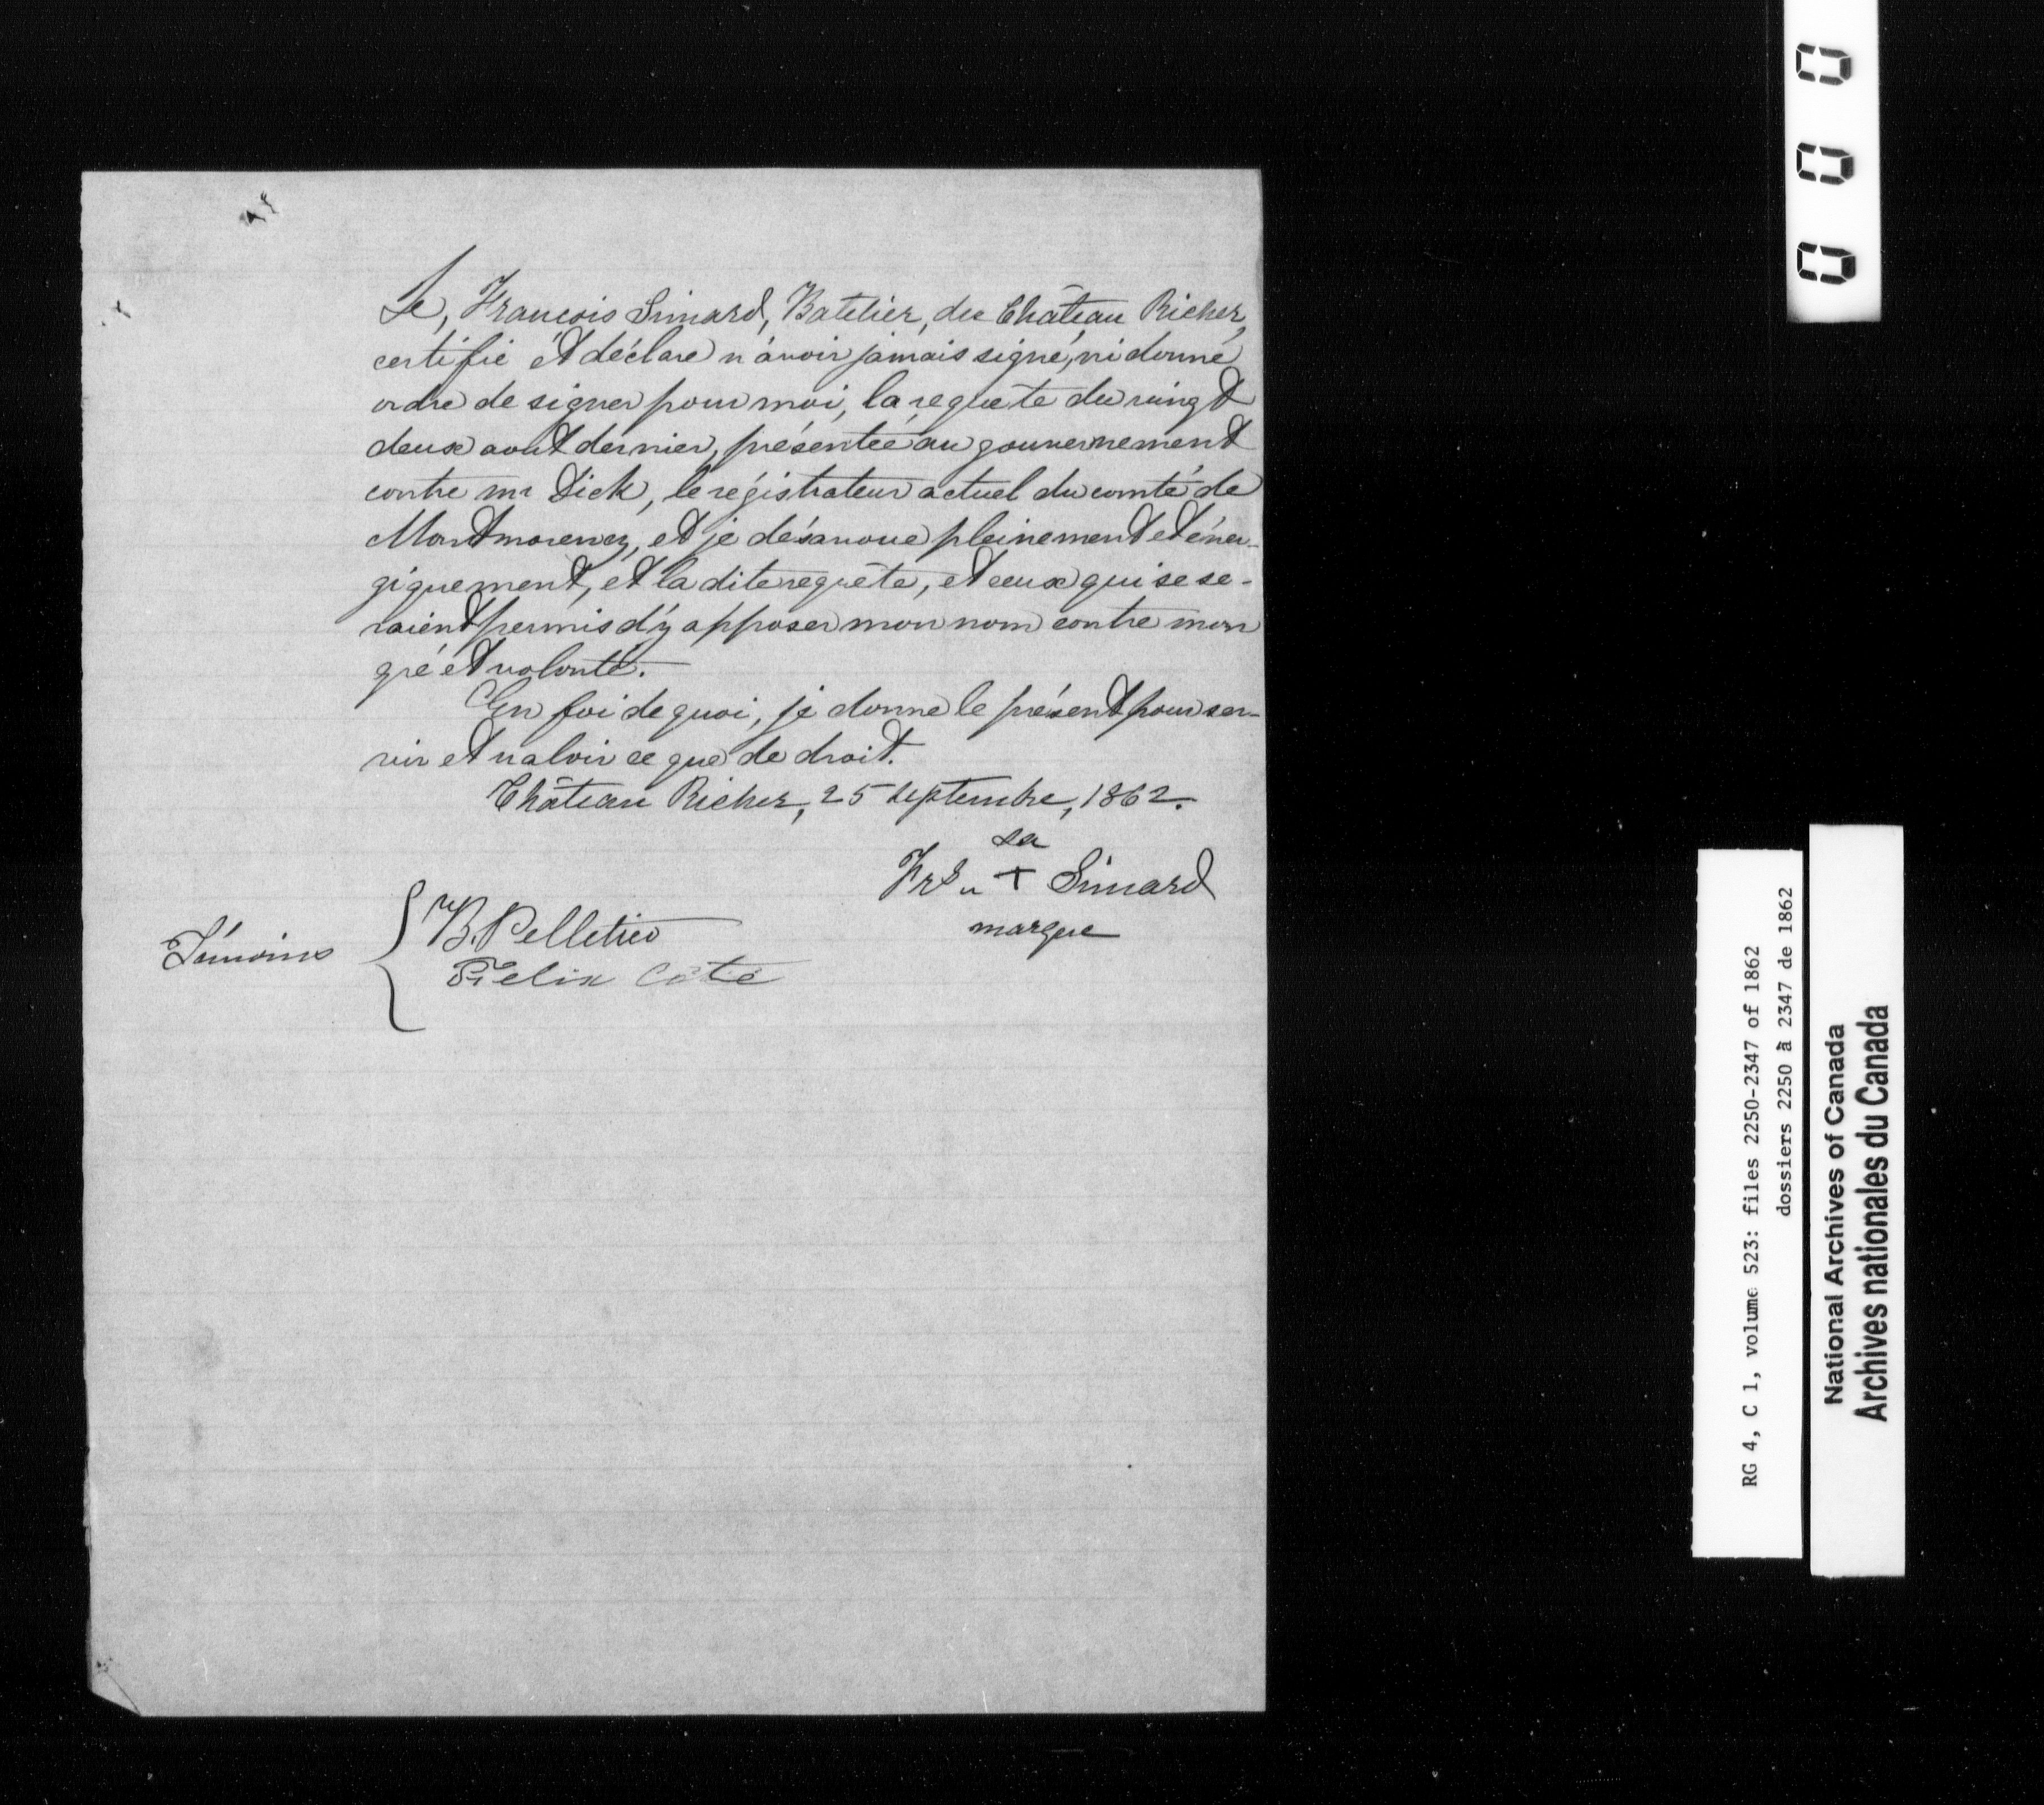 Je, François Simard, Batelier, du Château Richer,
certifie et déclare n'avoir jamais signé, ni donné
ordre de signer pour moi, la requête du vingt
deux août dernier, présentée au gouvernement
contre mr Dick, le régistrateur actuel du comté de
Montmorency, et je désavoue pleinement et éner-
giquement, et la dite requête, et ceux qui se se-
raient permis d'y apposer mon nom contre mon
gré et volonté.
En foi de quoi, je donne le présent pour ser-
vir et valoir ce que de droit.
Château Richer, 25 septembre, 1862.
sa
Frs + Simard
marque
Témoins
B. Pelletier
Felix Coté
000
RG 4, C 1, volume 523: files 2250-2347 of 1862
dossiers 2250 à 2347 de 1862
National Archives of Canada
Archives nationales du Canada